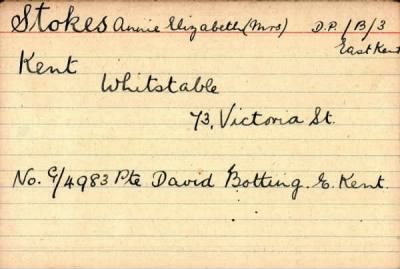 Stokes Annie Elizabeth (Mrs) D.P./B/3
East Kent
Kent
Whitstable
73, Victoria St.
No. G/4983 Pte David Botting. E. Kent.